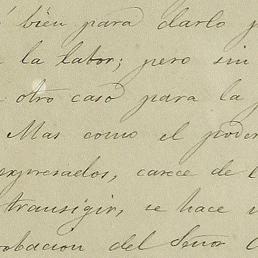 bien para darlo
la labor; pero sin
otro caso para la
Mas como el poder
expresados, carece de
transigir, se hace
del Señor